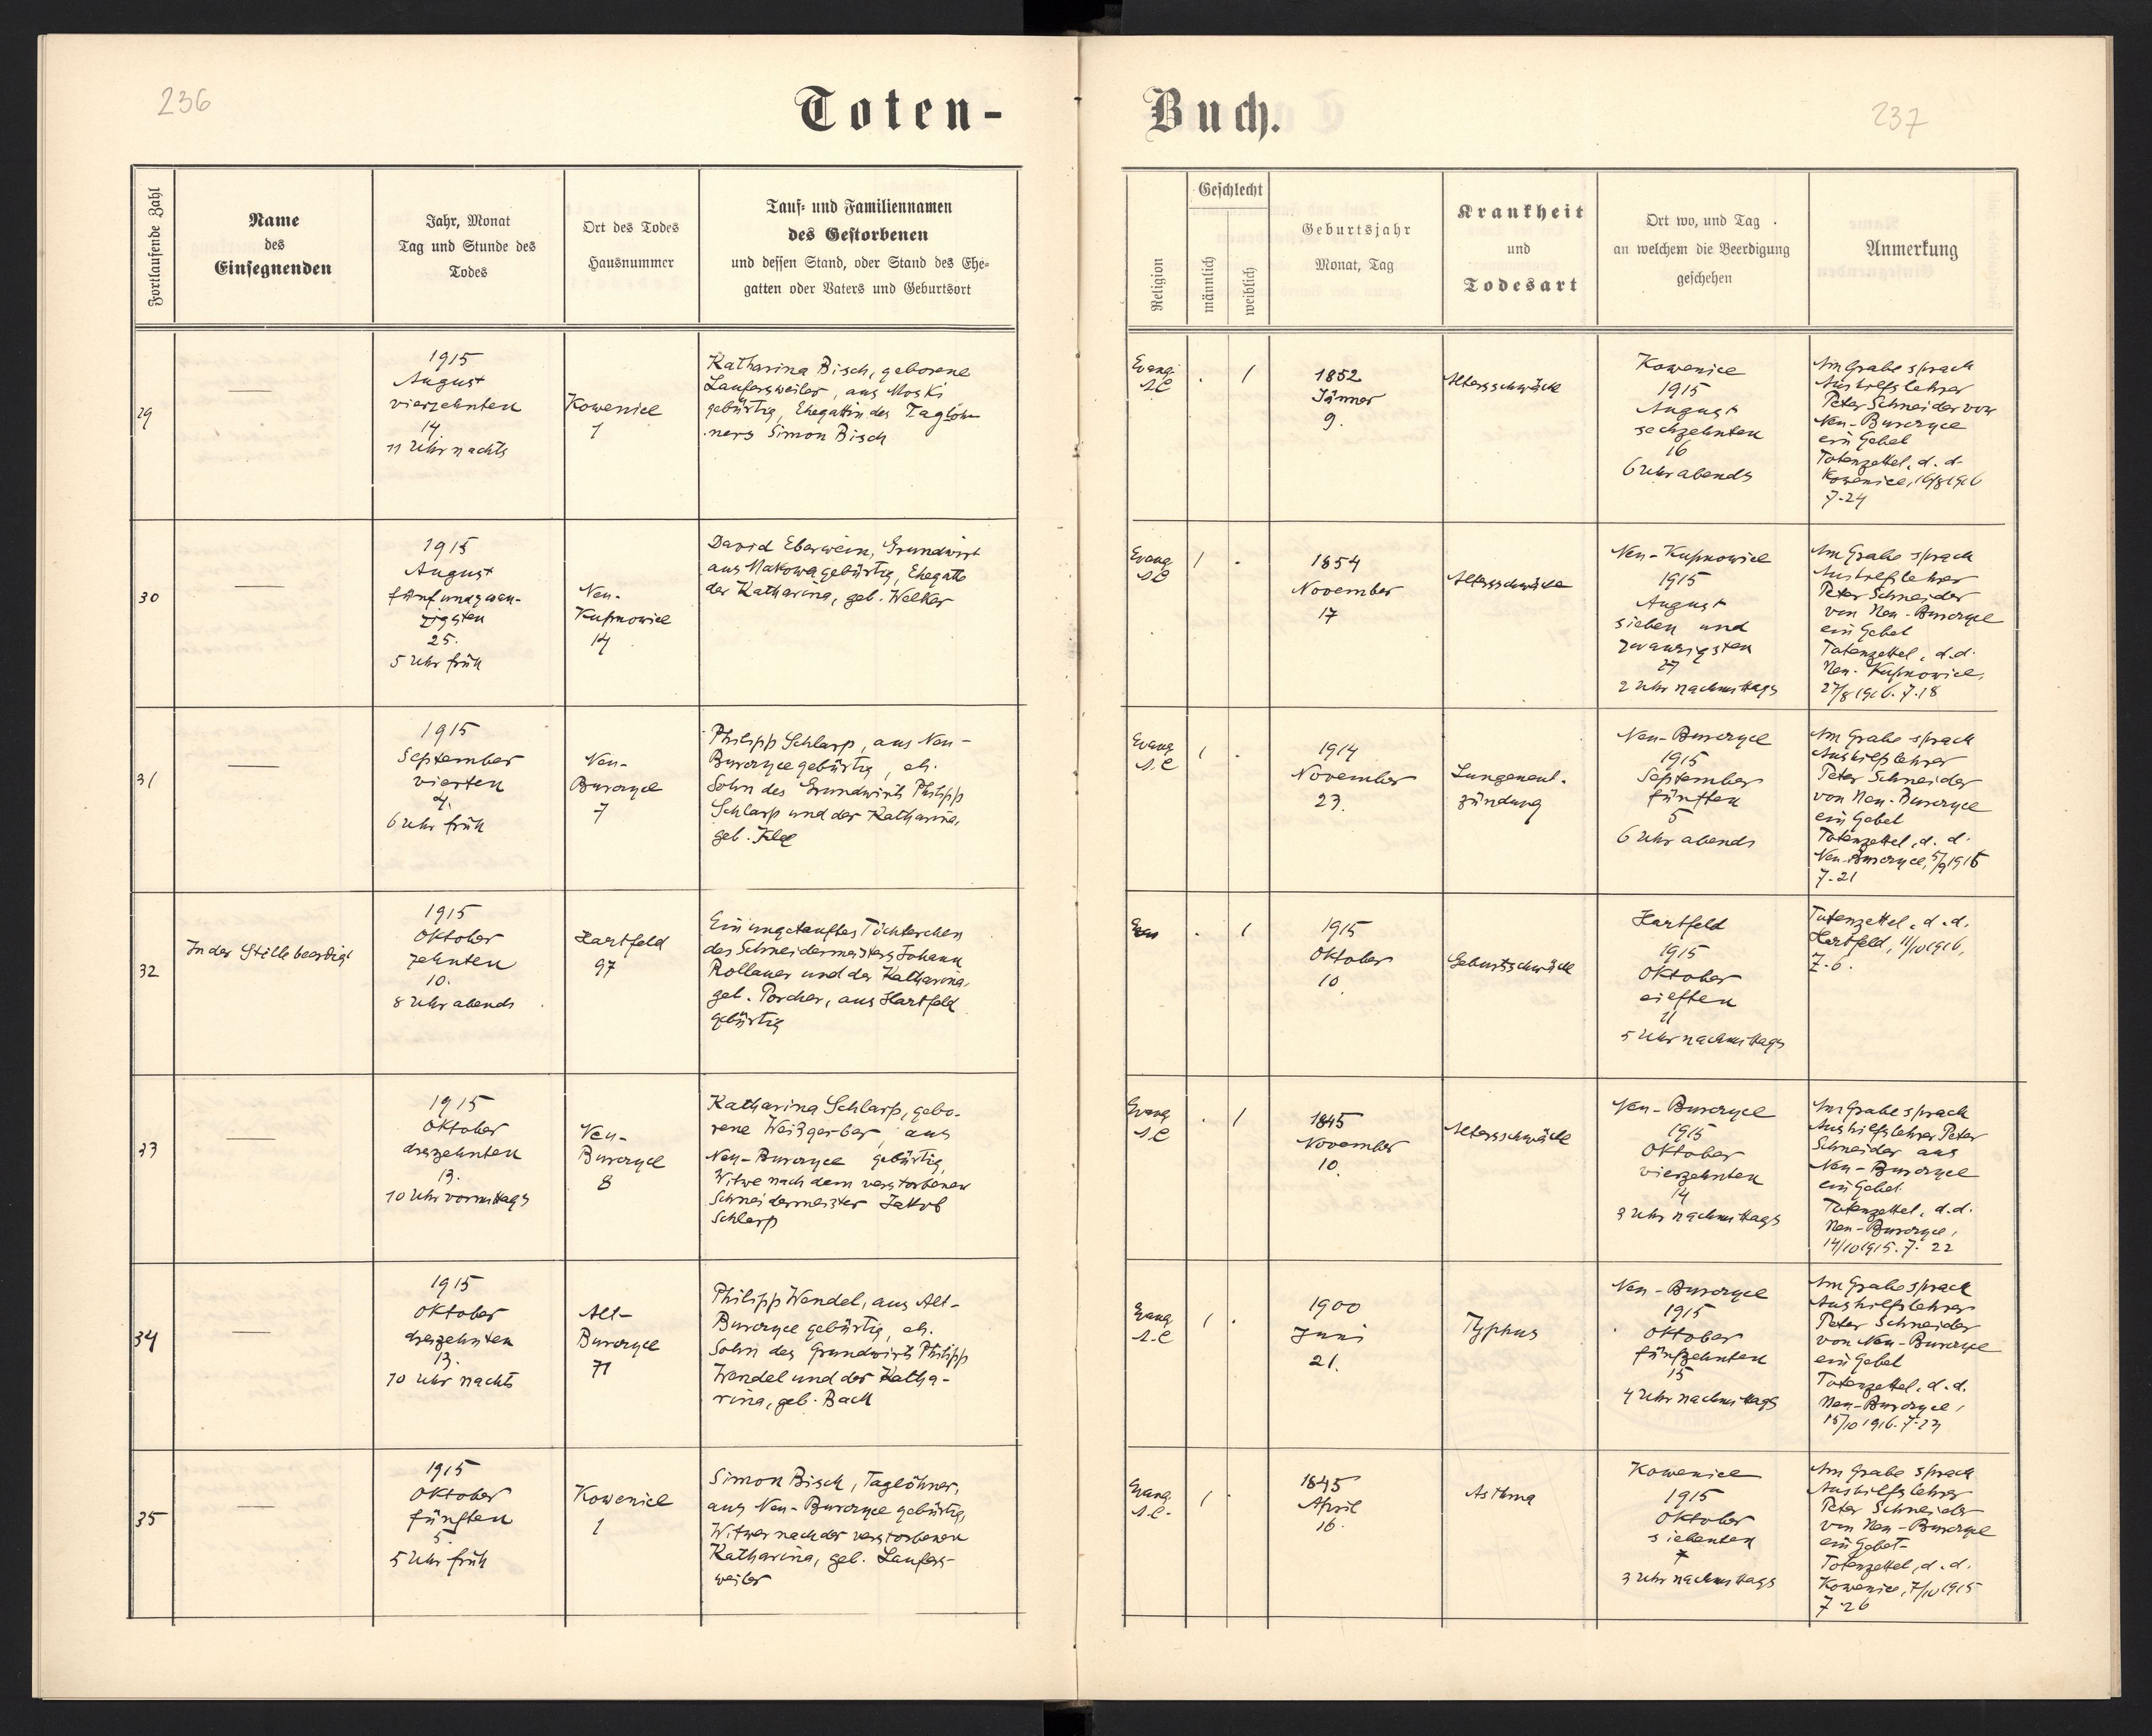 236
Toten-
Fortlaufende Zahl
Name
des
Einsegnenden
Jahr, Monat
Tag und Stunde des
Todes
Ort des Todes
Hausnummer
Tauf- und Familiennamen
des Gestorbenen
und dessen Stand, oder Stand des Ehe-
gatten oder Vaters und Geburtsort
29
—
1915
August
vierzehnten
14
11 Uhr nachts
Kowenice
1
Katharina Bisch, geborene
Laufersweiler, aus Moski
gebürtig, Ehegattin des Taglöh-
ners Simon Bisch
30
—
1915
August
fünfundzwan-
zigsten
25.
5 Uhr früh
Neu-
Kupnowice
14
David Eberwein, Grundwirt
aus Makowa gebürtig, Ehegatte
der Katharina, geb. Welker
31
—
1915
September
vierten
4.
6 Uhr früh
Neu-
Burczyce
7
Philipp Schlarp, aus Neu-
Burczyce gebürtig, eh.
Sohn des Grundwirts Philipp
Schlarp und der Katharina,
geb. Klee
32
In der Stille beerdigt
1915
Oktober
zehnten
10.
8 Uhr abends
Hartfeld
97
Ein ungetauftes Töchterchen
des Schneidermeisters Johann
Rollauer und der Katharina,
geb. Porcher, aus Hartfeld
gebürtig
33
—
1915
Oktober
dreizehnten
13.
10 Uhr vormittags
Neu-
Burczyce
8
Katharina Schlarp, gebo-
rene Weißgerber, aus
Neu-Burczyce gebürtig,
Witwe nach dem verstorbenen
Schneidermeister Jakob
Schlarp
34
—
1915
Oktober
dreizehnten
13.
10 Uhr nachts
Alt-
Burczyce
71
Philipp Wendel, aus Alt-
Burczyce gebürtig, eh.
Sohn des Grundwirts Philipp
Wendel und der Katha-
rina, geb. Bach
35
—
1915
Oktober
fünften
5.
5 Uhr früh
Kowenice
1
Simon Bisch, Taglöhner,
aus Neu-Burczyce gebürtig,
Witwer nach der verstorbenen
Katharina, geb. Laufers-
weiler
Buch.
237
Religion
Geschlecht
männlich
weiblich
Geburtsjahr
Monat, Tag
Krankheit
und
Todesart
Ort wo, und Tag
an welchem die Beerdigung
geschehen
Anmerkung
Evang.
A.C
. 1
1852
Jänner
9.
Altersschwäche
Kowenice
1915
August
sechzehnten
16
6 Uhr abends
Am Grabe sprach
Aushilfslehrer
Peter Schneider von
Neu-Burczyce
ein Gebet
Totenzettel, d. d.
Kowenice, 16/8 1916
7.24
Evang.
A.C
1 .
1854
November
17
Altersschwäche
Neu-Kupnowice
1915
August
sieben und
zwanzigsten
27
2 Uhr nachmittags
Am Grabe sprach
Aushilfslehrer
Peter Schneider
von Neu-Burczyce
ein Gebet
Totenzettel, d.d.
Neu-Kupnowice,
27/8 1916. 7.18
Evang.
A.C
1 .
1914
November
23.
Lungenent-
zündung
Neu-Burczyce
1915
September
fünften
5
6 Uhr abends
Am Grabe sprach
Aushilfslehrer
Peter Schneider
von Neu-Burczyce
ein Gebet
Totenzettel, d. d.
Neu-Burczyce, 5/9 1915
7.21
. 1
1915
Oktober
10
Geburtsschwäche
Hartfeld
1915
Oktober
elften
11
5 Uhr nachmittags
Totenzettel, d. d.
Hartfeld, 11/10 1916,
Z. 6.
Evang.
A.C
. 1
1845
November
10.
Altersschwäche
Neu-Burczyce
1915
Oktober
vierzehnten
14
3 Uhr nachmittags
Am Grabe sprach
Aushilfslehrer Peter
Schneider aus
Neu-Burczyce
ein Gebet
Totenzettel, d.d.
Neu-Burczyce,
14/10 1915. 7. 22
Evang.
A.C
1 .
1900
Juni
21.
Typhus
Neu-Burczyce
1915
Oktober
fünfzehnten
15
4 Uhr nachmittags
Am Grabe sprach
Aushilfslehrer
Peter Schneider
von Neu-Burczyce
ein Gebet
Totenzettel, d. d.
Neu-Burczyce,
15/10 1916. 7.23
Evang.
A.C.
1 .
1845
April
16.
Asthma
Kowenice
1915
Oktober
siebenten
7
3 Uhr nachmittags
Am Grabe sprach
Aushilfslehrer
Peter Schneider
von Neu-Burczyce
ein Gebet
Totenzettel, d. d.
Kowenice, 7/10 1915
7.26